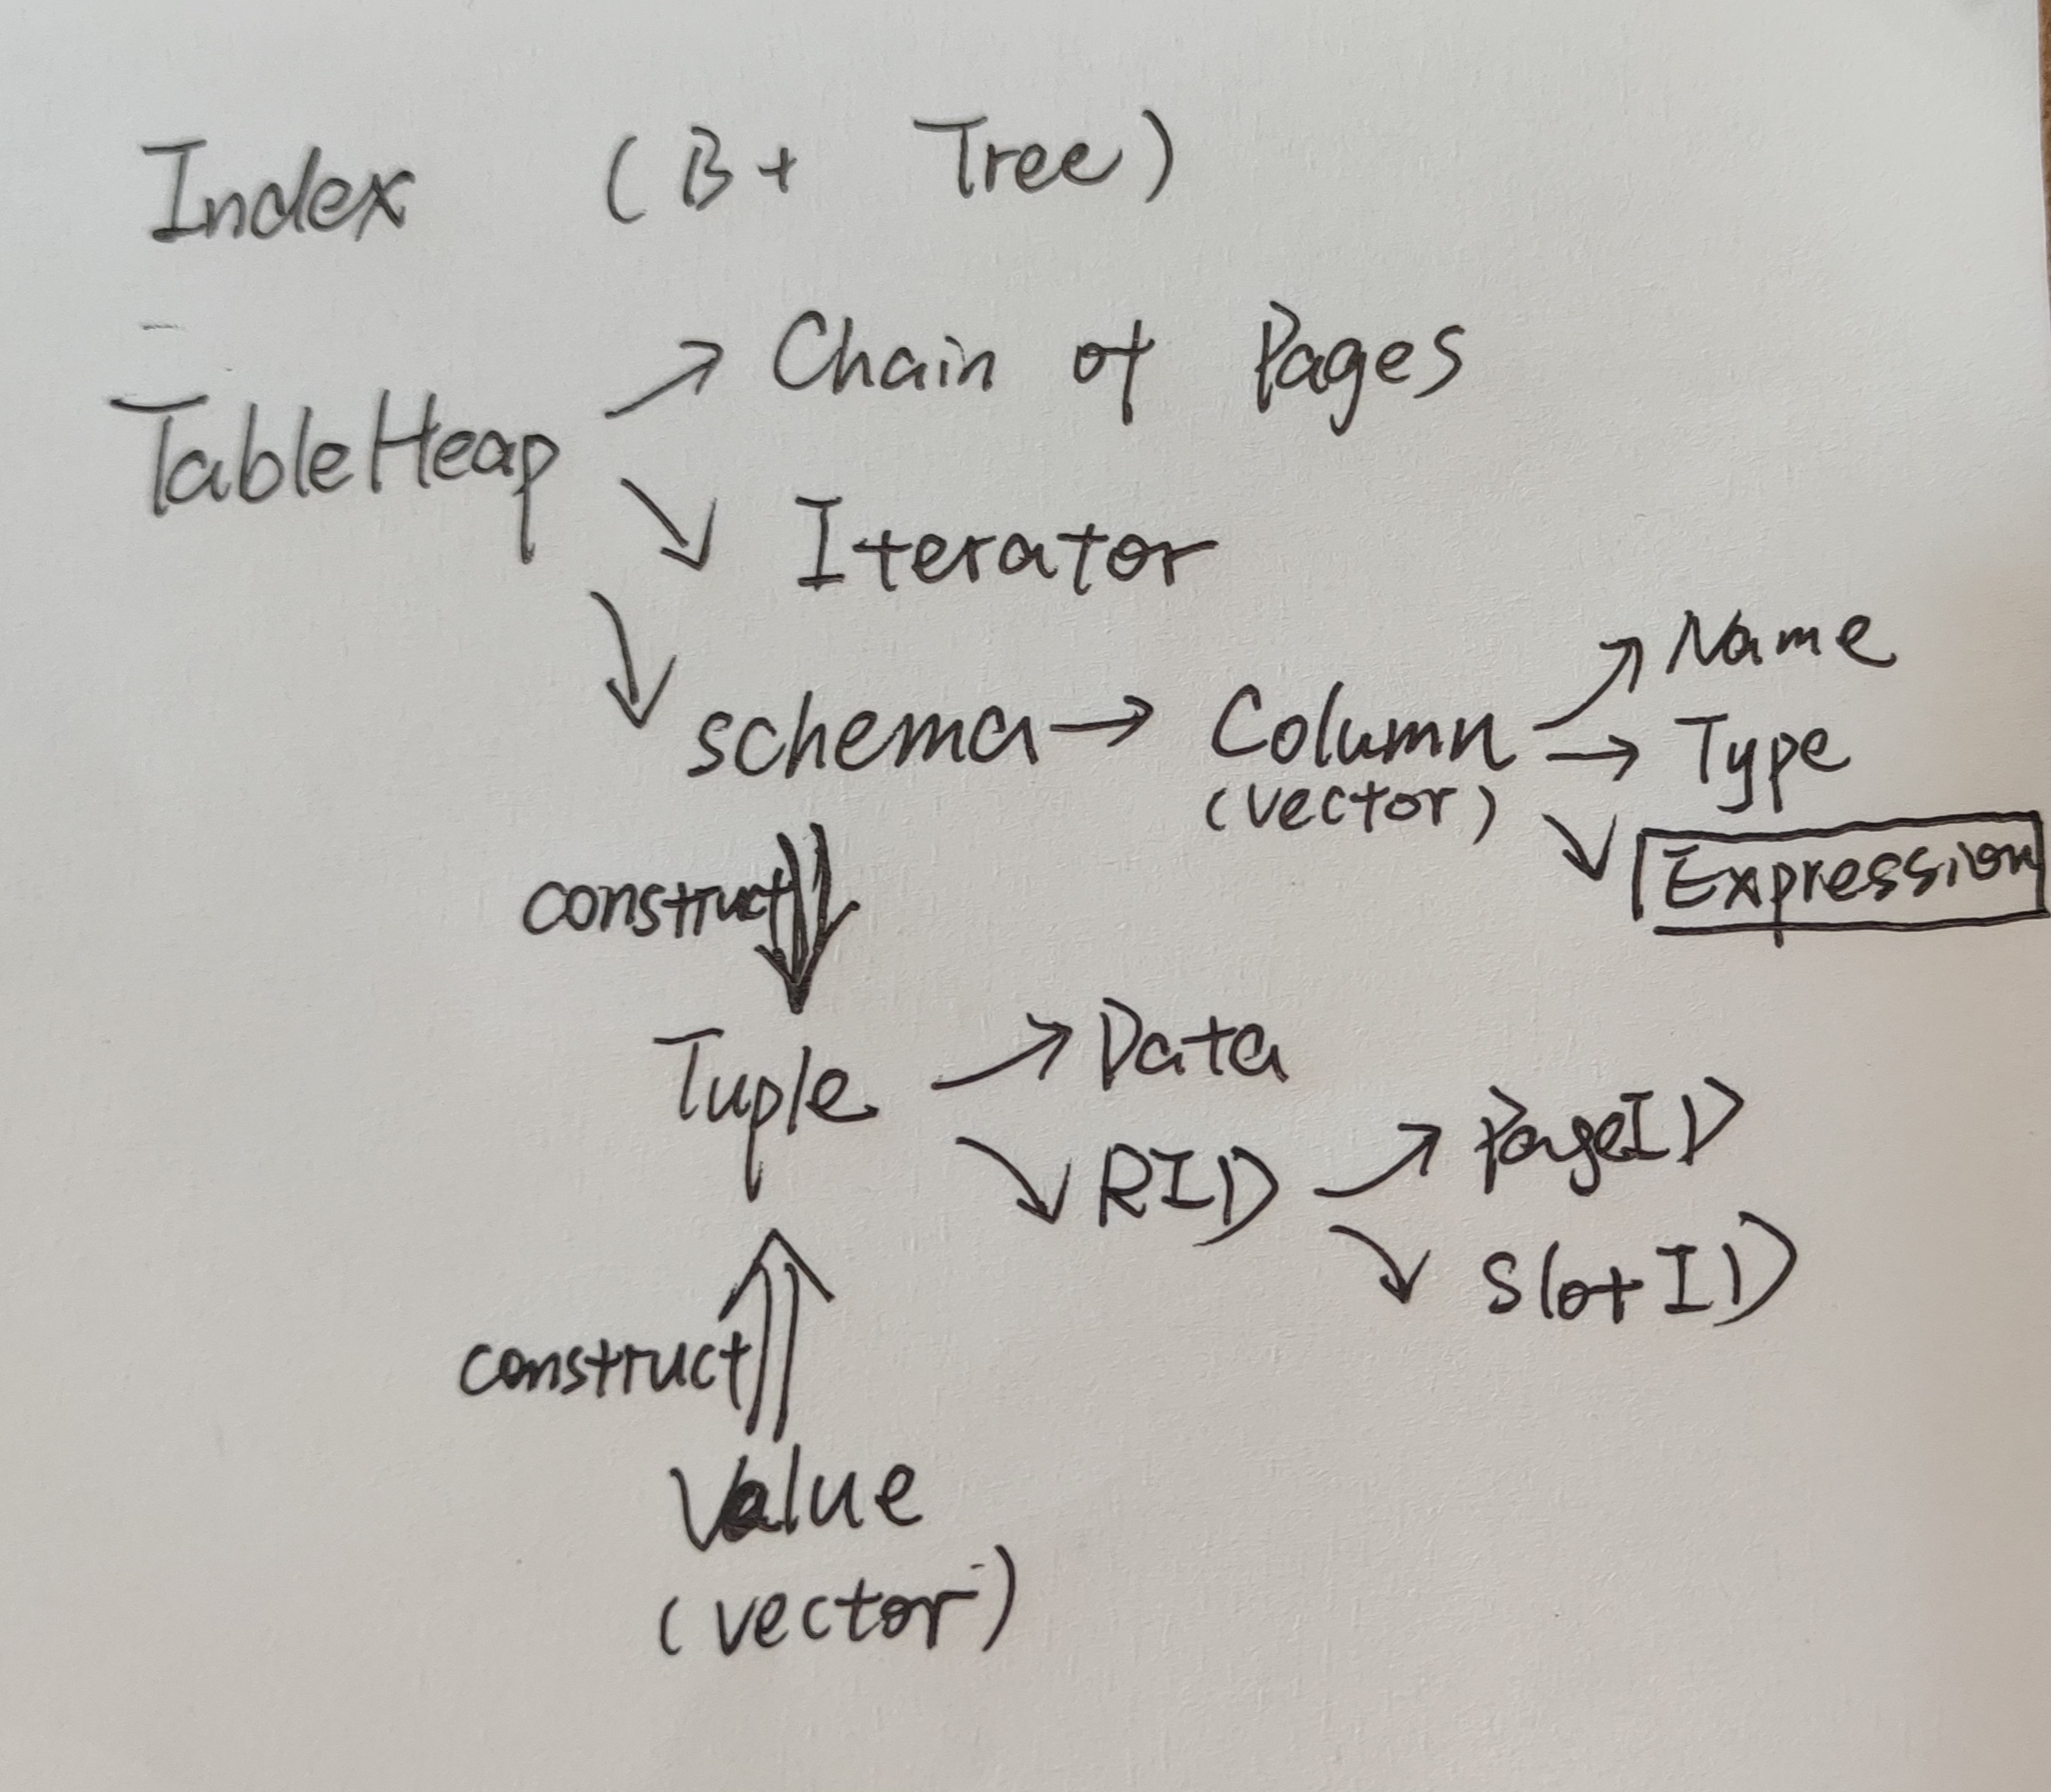 Index (B+ Tree)
TableHeap → Chain of Pages
↘ Iterator
↘ schema → Column → Name
(vector) → Type
↘ Expression
construct
Tuple → Data
↘ RID → PageID
↘ SlotID
construct
Value
(vector)